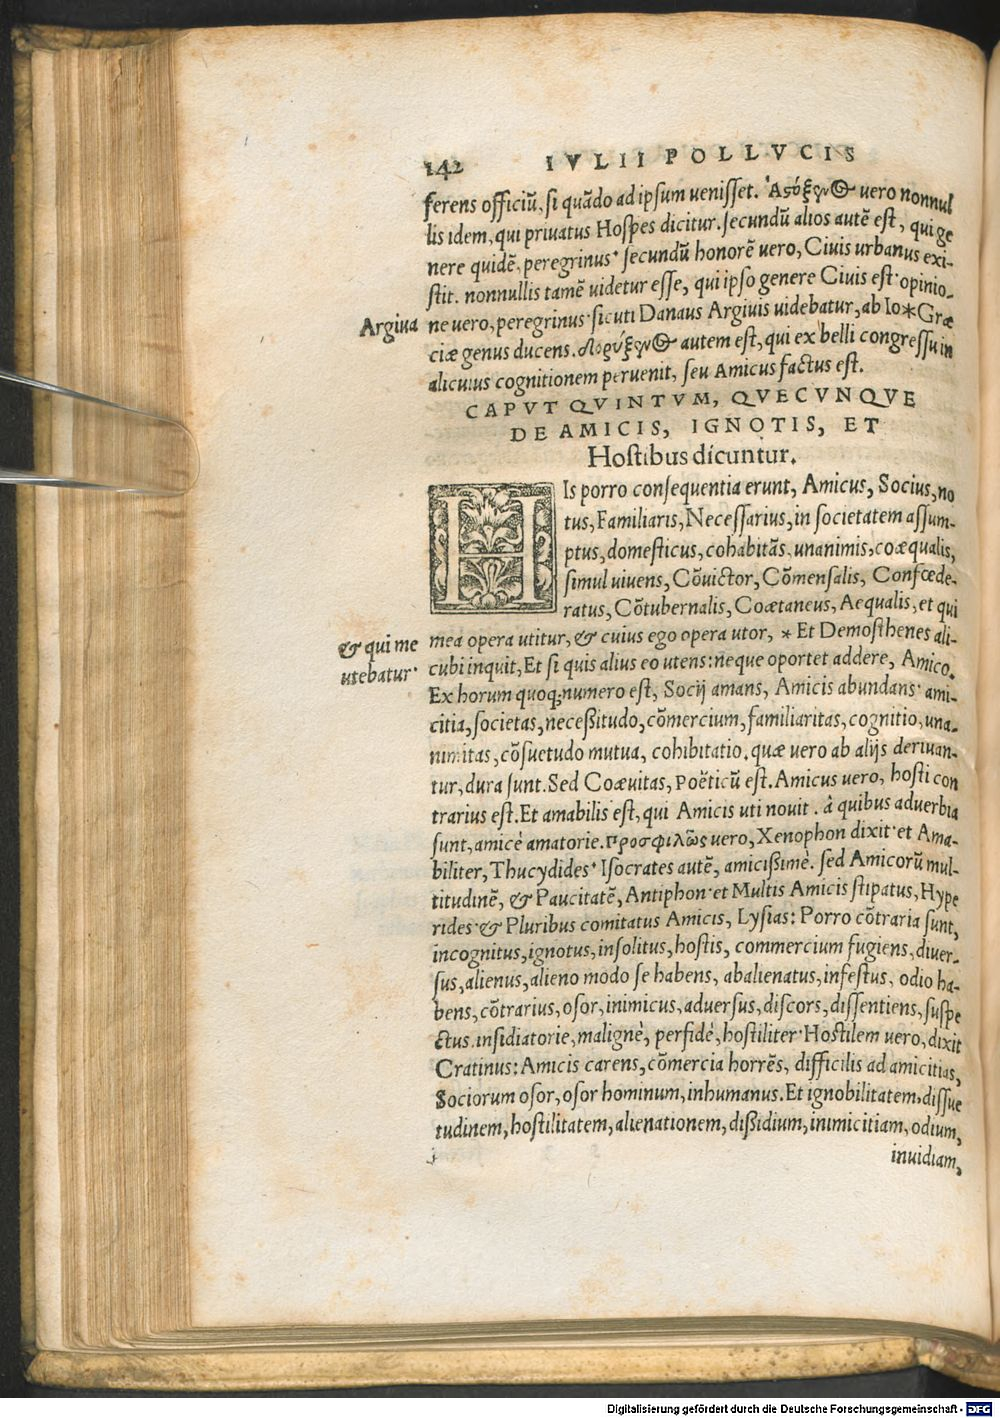 142 IVLII POLLVCIS
ferens officiũ, si quãdo ad ipsum venisset. Ἀςόξεν@ vero nonnul
lis idem, qui privatus Hospes dicitur. secundũ alios autẽ est, qui ge
nere quidẽ, peregrinus· secundũ honorẽ vero, Civis urbanus exi-
stit. nonnullis tamẽ videtur esse, qui ipso genere Civis est· opinio-
Argiva
ne vero, peregrinus· sicuti Danaus Argivis videbatur, ab Io*Græ
ciæ genus ducens. autem est, qui ex belli congressu in
alicuius cognitionem pervenit, seu Amicus factus est.
CAPVT QVINTVM, QVECVNQVE
DE AMICIS, IGNOTIS, ET
Hostibus dicuntur.
HIs porro consequentia erunt, Amicus, Socius, no
tus, Familiaris, Necessarius, in societatem assum-
ptus, domesticus, cohabitãs, unanimis, coæqualis,
simul vivens, Cõvictor, Cõmensalis, Confœde-
ratus, Cõtubernalis, Coætaneus, Aequalis, et qui
& qui me
utebatur·
mea opera utitur, & cuius ego opera utor, * Et Demosthenes ali-
cubi inquit, Et si quis alius eo utens: neque oportet addere, Amico.
Ex horum quoq; numero est, Socij amans, Amicis abundans· ami-
citia, societas, neceßitudo, cõmercium, familiaritas, cognitio, una-
nimitas, cõsuetudo mutua, cohibitatio. quæ vero ab alijs derivan-
tur, dura sunt. Sed Coævitas, Poëticũ est. Amicus vero, hosti con
trarius est. Et amabilis est, qui Amicis uti novit. à quibus adverbia
sunt, amicè amatorie. Προσφιλῶς vero, Xenophon dixit· et Ama-
biliter, Thucydides· Isocrates autẽ, amicißimè. sed Amicorũ mul-
titudinẽ, & Paucitatẽ, Antiphon· et Multis Amicis stipatus, Hype
rides· & Pluribus comitatus Amicis, Lysias: Porro cõtraria sunt,
incognitus, ignotus, insolitus, hostis, commercium fugiens, diver-
sus, alienus, alieno modo se habens, abalienatus, infestus, odio ha-
bens, cõtrarius, osor, inimicus, adversus, discors, dissentiens, suspe
ctus. insidiatorie, malignè, perfidè, hostiliter· Hostilem vero, dixit
Cratinus: Amicis carens, cõmercia horrẽs, difficilis ad amicitias,
Sociorum osor, osor hominum, inhumanus. Et ignobilitatem, dissue
tudinem, hostilitatem, alienationem, dißidium, inimicitiam, odium,
invidiam,
Digitalisierung gefördert durch die Deutsche Forschungsgemeinschaft - DFG